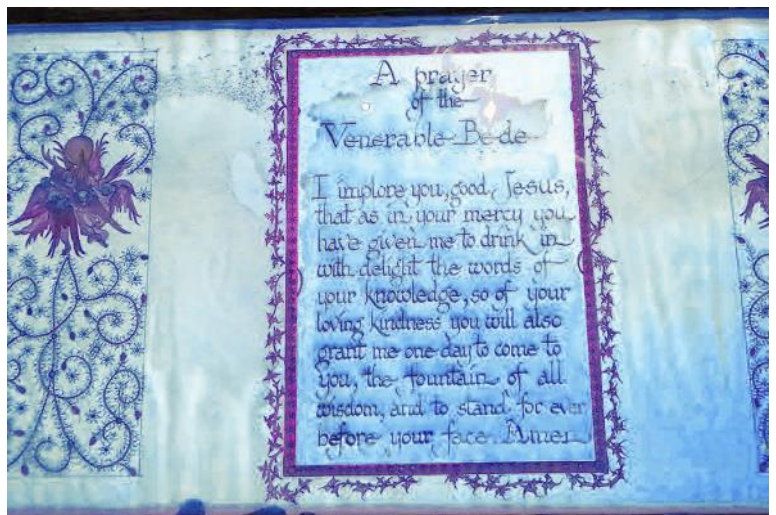 A prayer
of the
Venerable Bede
I implore you, good Jesus,
that as in your mercy you
have given me to drink in
with delight the words of
your knowledge, so of your
loving kindness you will also
grant me one day to come to
you, the fountain of all
wisdom, and to stand for ever
before your face. Amen